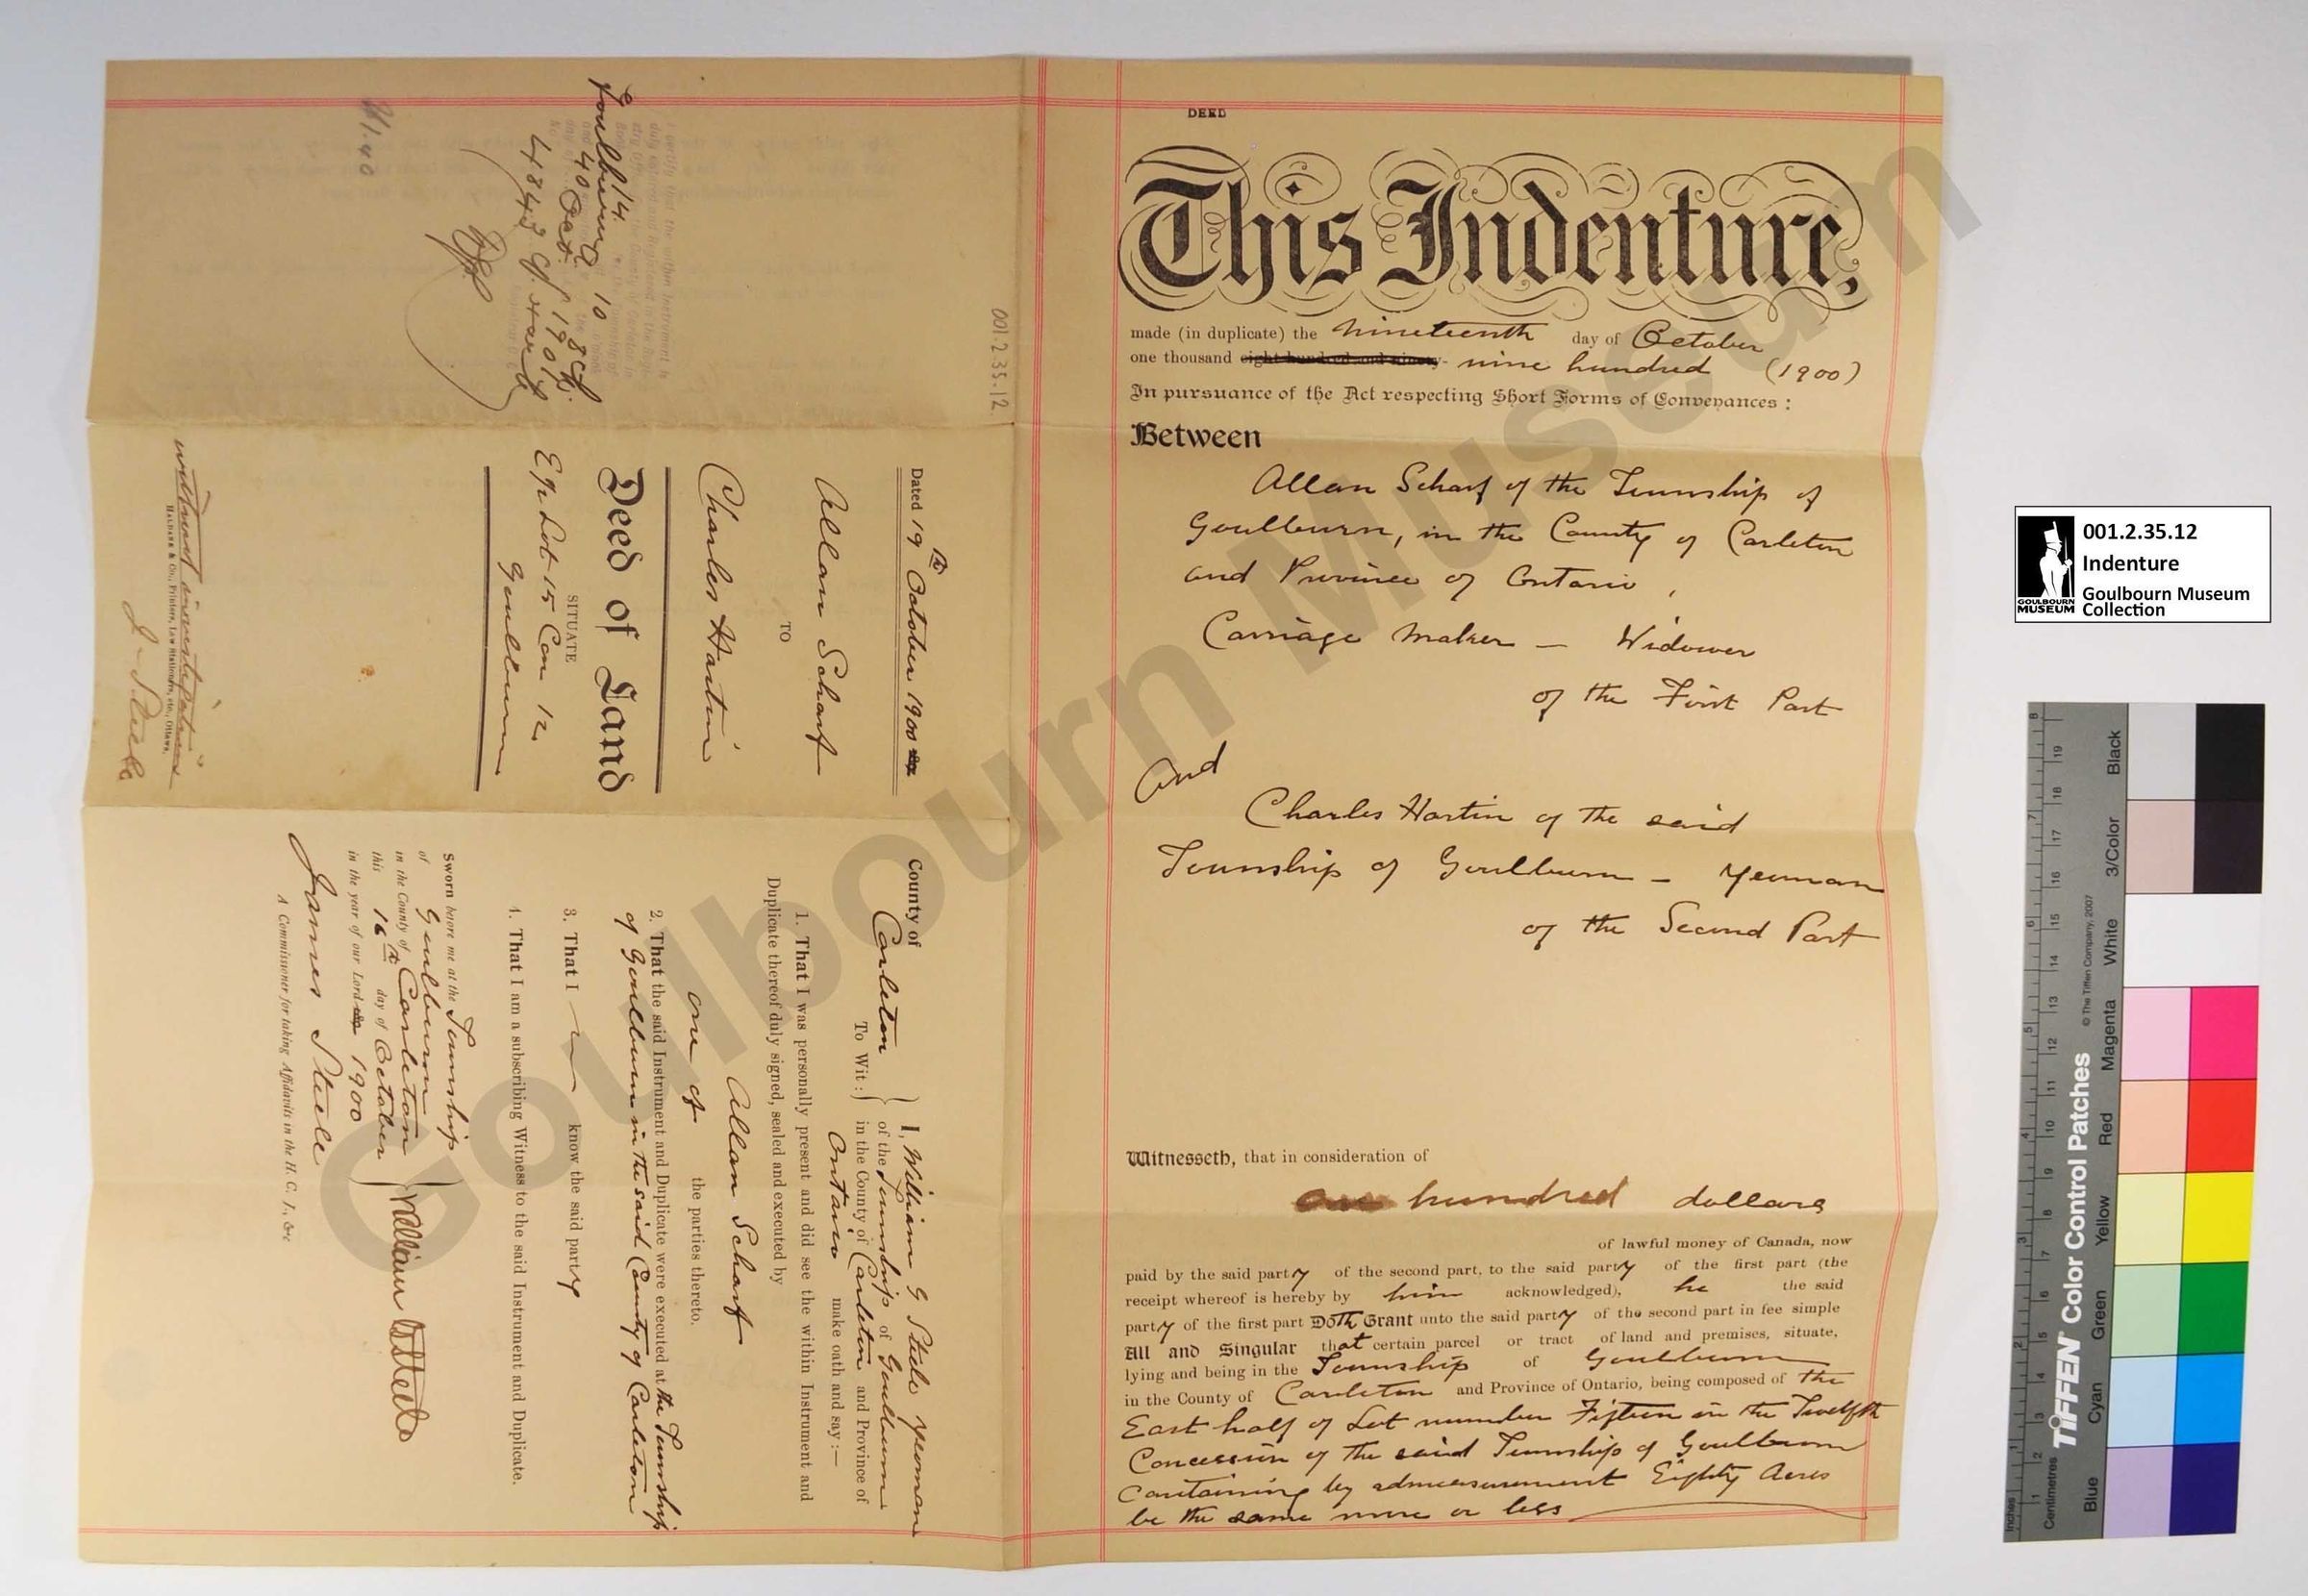 DEED
This Indenture,
made (in duplicate) the nineteenth day of October
one thousand eight hundred and ninety- nine hundred (1900)
In pursuance of the Act respecting Short Forms of Conveyances :
Between
Allan Scharf of the Township of
Goulburn, in the County of Carleton
and Province of Ontario,
Carriage Maker — Widower
of the First Part
And
Charles Hartin of the said
Township of Goulburn — Yeoman
of the Second Part
Witnesseth, that in consideration of
one hundred dollars
of lawful money of Canada, now
paid by the said party of the second part, to the said party of the first part (the
receipt whereof is hereby by him acknowledged), he the said
party of the first part Doth Grant unto the said party of the second part in fee simple
All and Singular that certain parcel or tract of land and premises, situate,
lying and being in the Township of Goulburn
in the County of Carleton and Province of Ontario, being composed of the
East half of Lot number Fifteen in the Twelfth
Concession of the said Township of Goulburn
Containing by admeasurement Eighty Acres
be the same more or less
001.2.35.12
Dated 19th October 1900
Allan Scharf
TO
Charles Hartin
Deed of Land
SITUATE
E½ Lot 15 Con 12
Goulburn
without investigation
HALDANE & Co., Printers, Law Stationers, etc., Ottawa.
J. Steele
$1.40
County of
Carleton
To Wit :
I, William G Steele yeoman
of the Township of Goulburn
in the County of Carleton and Province of
Ontario make oath and say :—
1. That I was personally present and did see the within Instrument and
Duplicate thereof duly signed, sealed and executed by
Allan Scharf
one of the parties thereto.
2. That the said Instrument and Duplicate were executed at the Township
of Goulburn in the said County of Carleton
3. That I know the said party
4. That I am a subscribing Witness to the said Instrument and Duplicate.
Sworn before me at the Township
of Goulburn
in the County of Carleton
this 16th day of October
in the year of our Lord 1900
William G Steele
James Steele
A Commissioner for taking Affidavits in the H. C. J., &c
Goulbourn Museum
001.2.35.12
Indenture
Goulbourn Museum
Collection
GOULBOURN
MUSEUM
TIFFEN Color Control Patches
© The Tiffen Company, 2007
Inches
Centimetres
Blue
Cyan
Green
Yellow
Red
Magenta
White
3/Color
Black